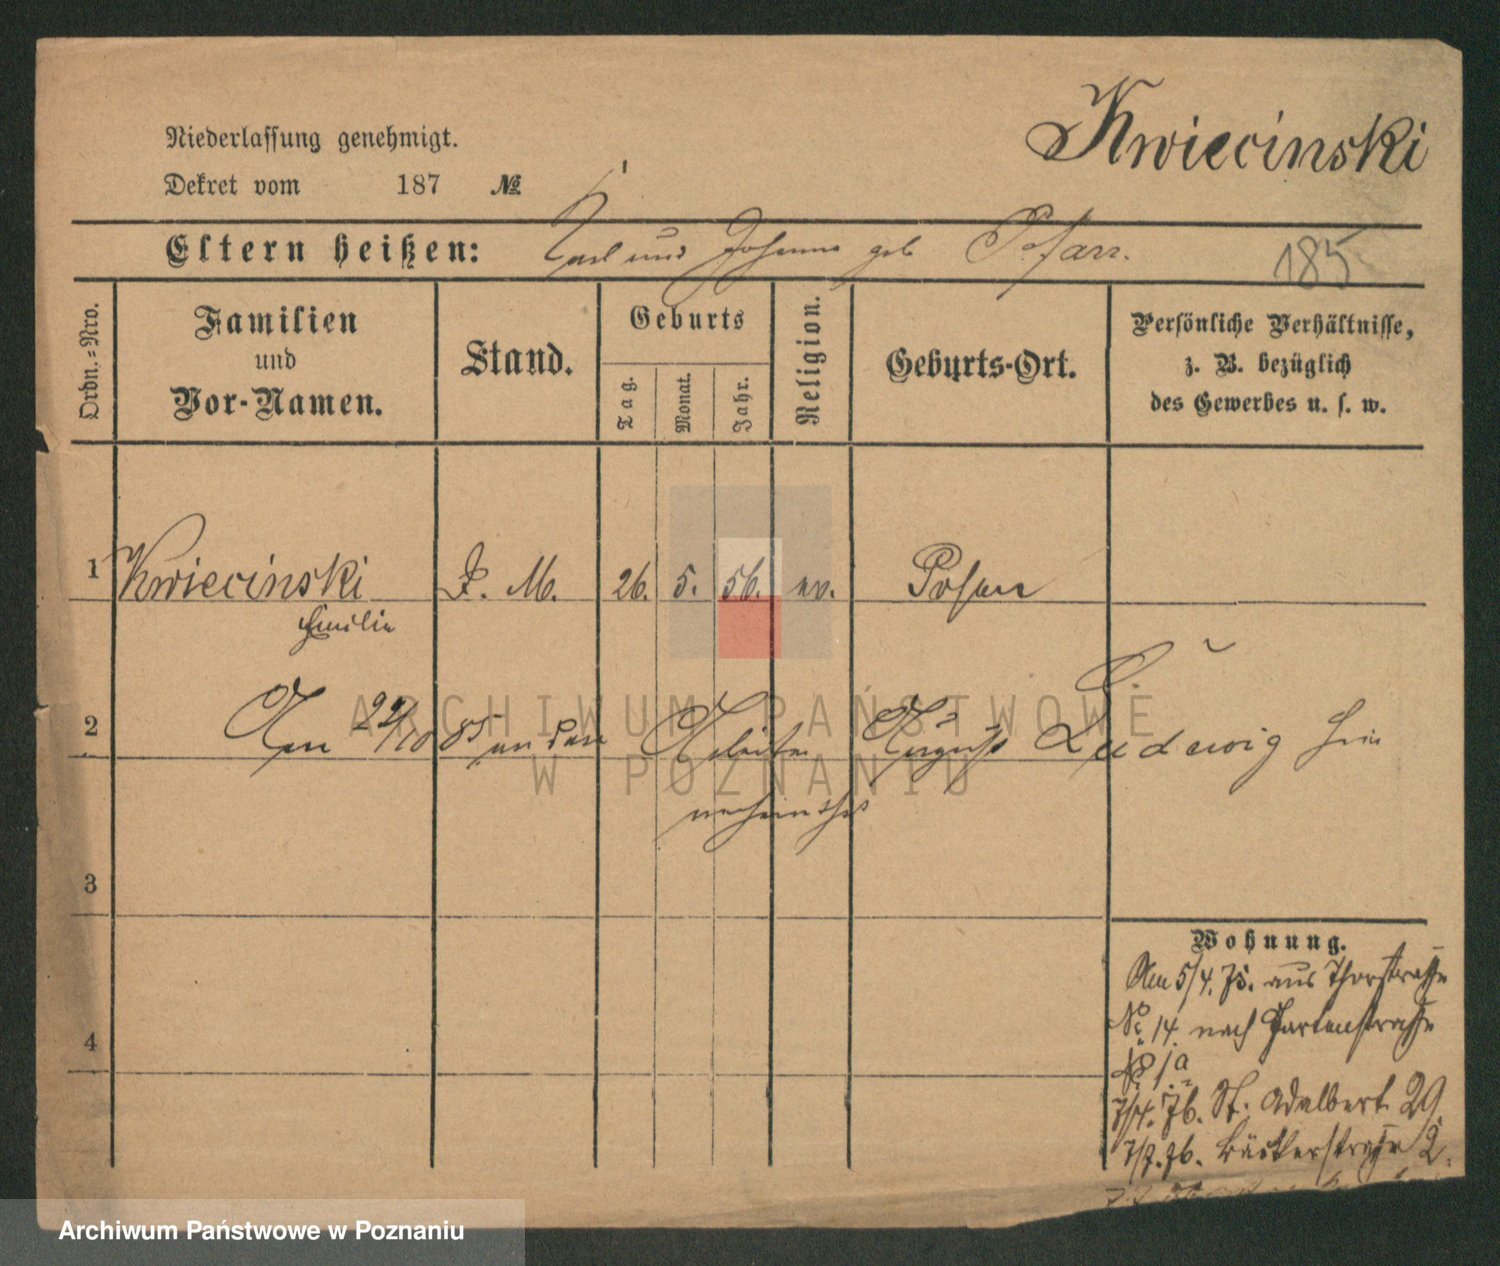 Kwiecinski
Niederlassung genehmigt.
Dekret vom 187 №
Eltern heißen: Karl und Johanna geb
185
Ordn.=Nro.
Familien
und
Vor-Namen.
Stand.
Geburts
Tag.
Monat.
Jahr.
Religion.
Geburts-Ort.
Persönliche Verhältnisse,
z. B. bezüglich
des Gewerbes u. s. w.
1 Kwiecinski D. M. 26. 5. 56. ev. Posen
Emilie
2 Am 22/10 85 an den Arbeiter August Ludwig hier
verheirathet
3
4
Wohnung.
Am 5/4. 75. aus Thorstrasse
No. 14. nach Gartenstrasse
No 1a
7/4. 76. St. Adalbert 29.
7/7. 76. Bäckerstrasse 2.
ARCHIWUM PAŃSTWOWE
W POZNANIU
Archiwum Państwowe w Poznaniu